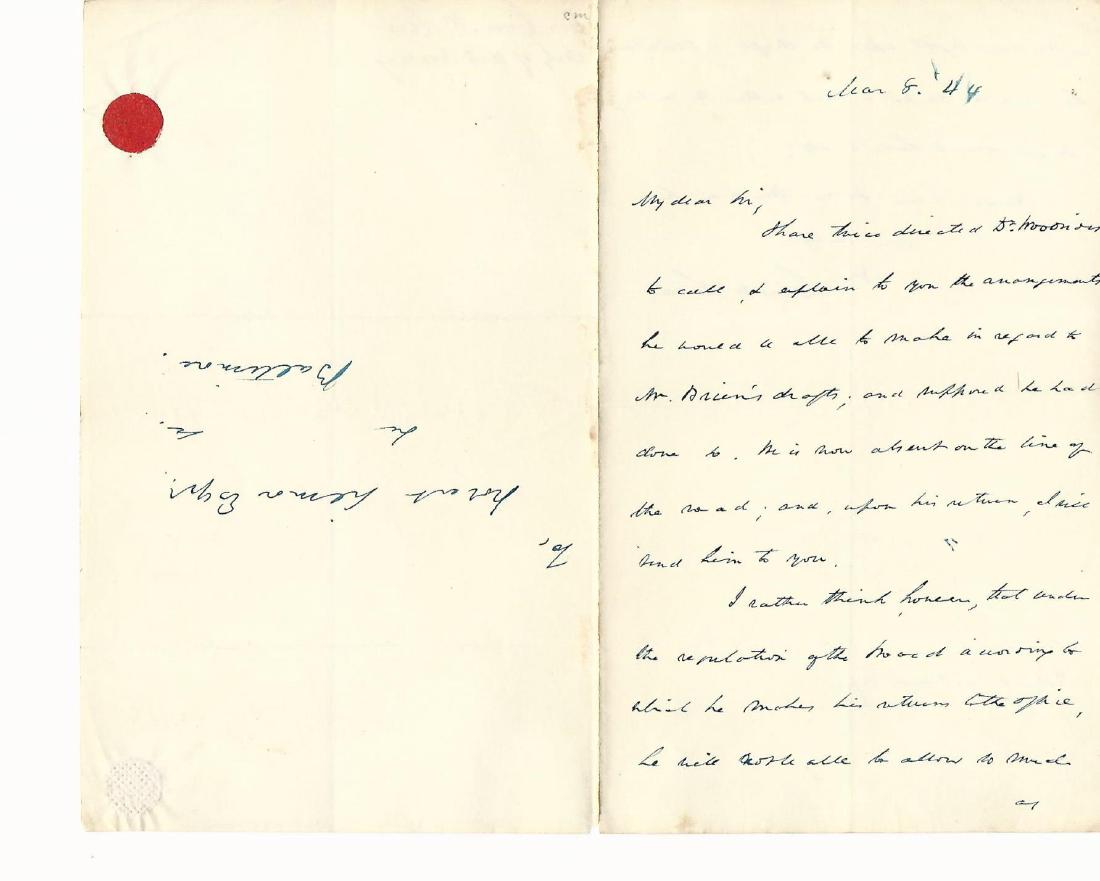 Mar 8. '44
My dear Sir,
I have twice directed Dr. Woodside
to call & explain to you the arrangements
he would be able to make in regard to
Mr. Brien's drafts; and supposed he had
done so. He is now absent on the line of
the road; and, upon his return, I will
send him to you.
I rather think however, that under
the regulation of the Board according to
which he makes his returns to the office,
he will not be able to allow so much
as
To,
Robert Gilmor Esqr.
&c &c.
Baltimore.